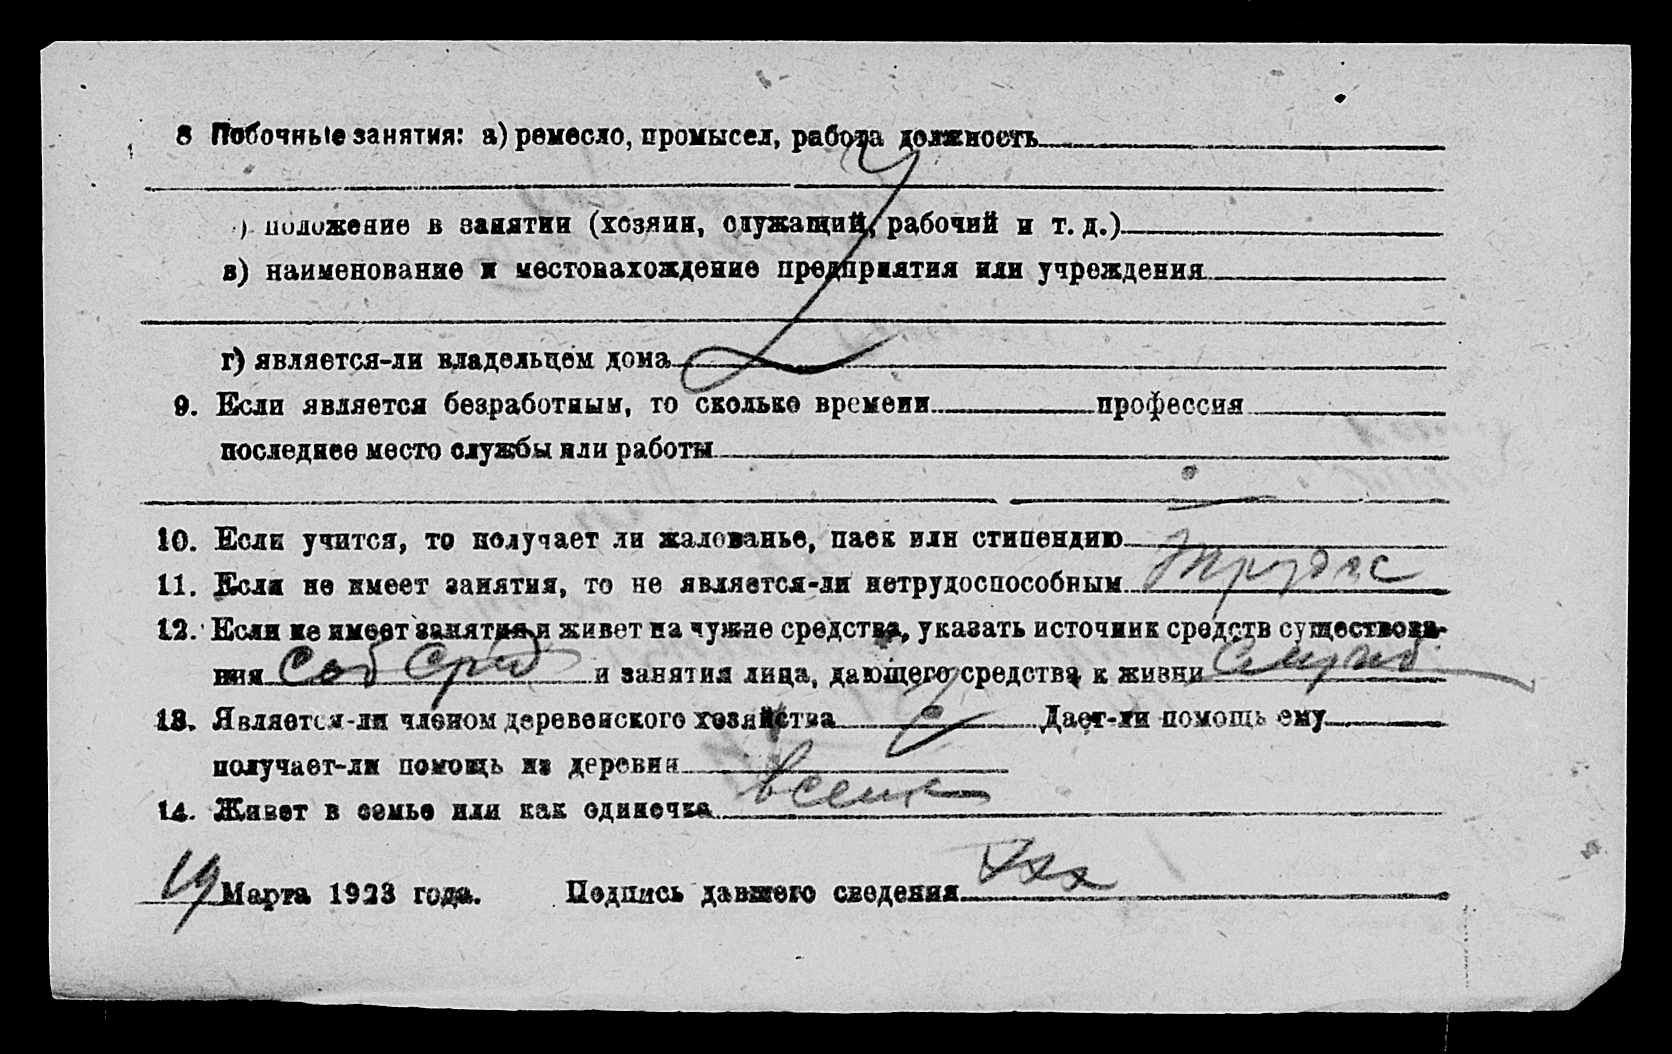 8 Побочные занятия: а) ремесло, промысел, работа должность
) положение в занятии (хозяин, служащий, рабочий и т. д.)
в) наименование и местонахождение предприятия или учреждения
г) является-ли владельцем дома
9. Если является безработным, то сколько времени профессия
последнее место службы или работы
10. Если учится, то получает ли жалованье, паек или стипендию
11. Если не имеет занятия, то не является-ли нетрудоспособным
12. Если не имеет занятия и живет на чужие средства, указать источник средств существова-
ния Соб сред и занятия лица, дающего средства к жизни
13. Является-ли членом деревенского хозяйства Дает-ли помощь ему
получает-ли помощь из деревни
14. Живет в семье или как одиночка в семье
19 Марта 1923 года. Подпись давшего сведения ххх